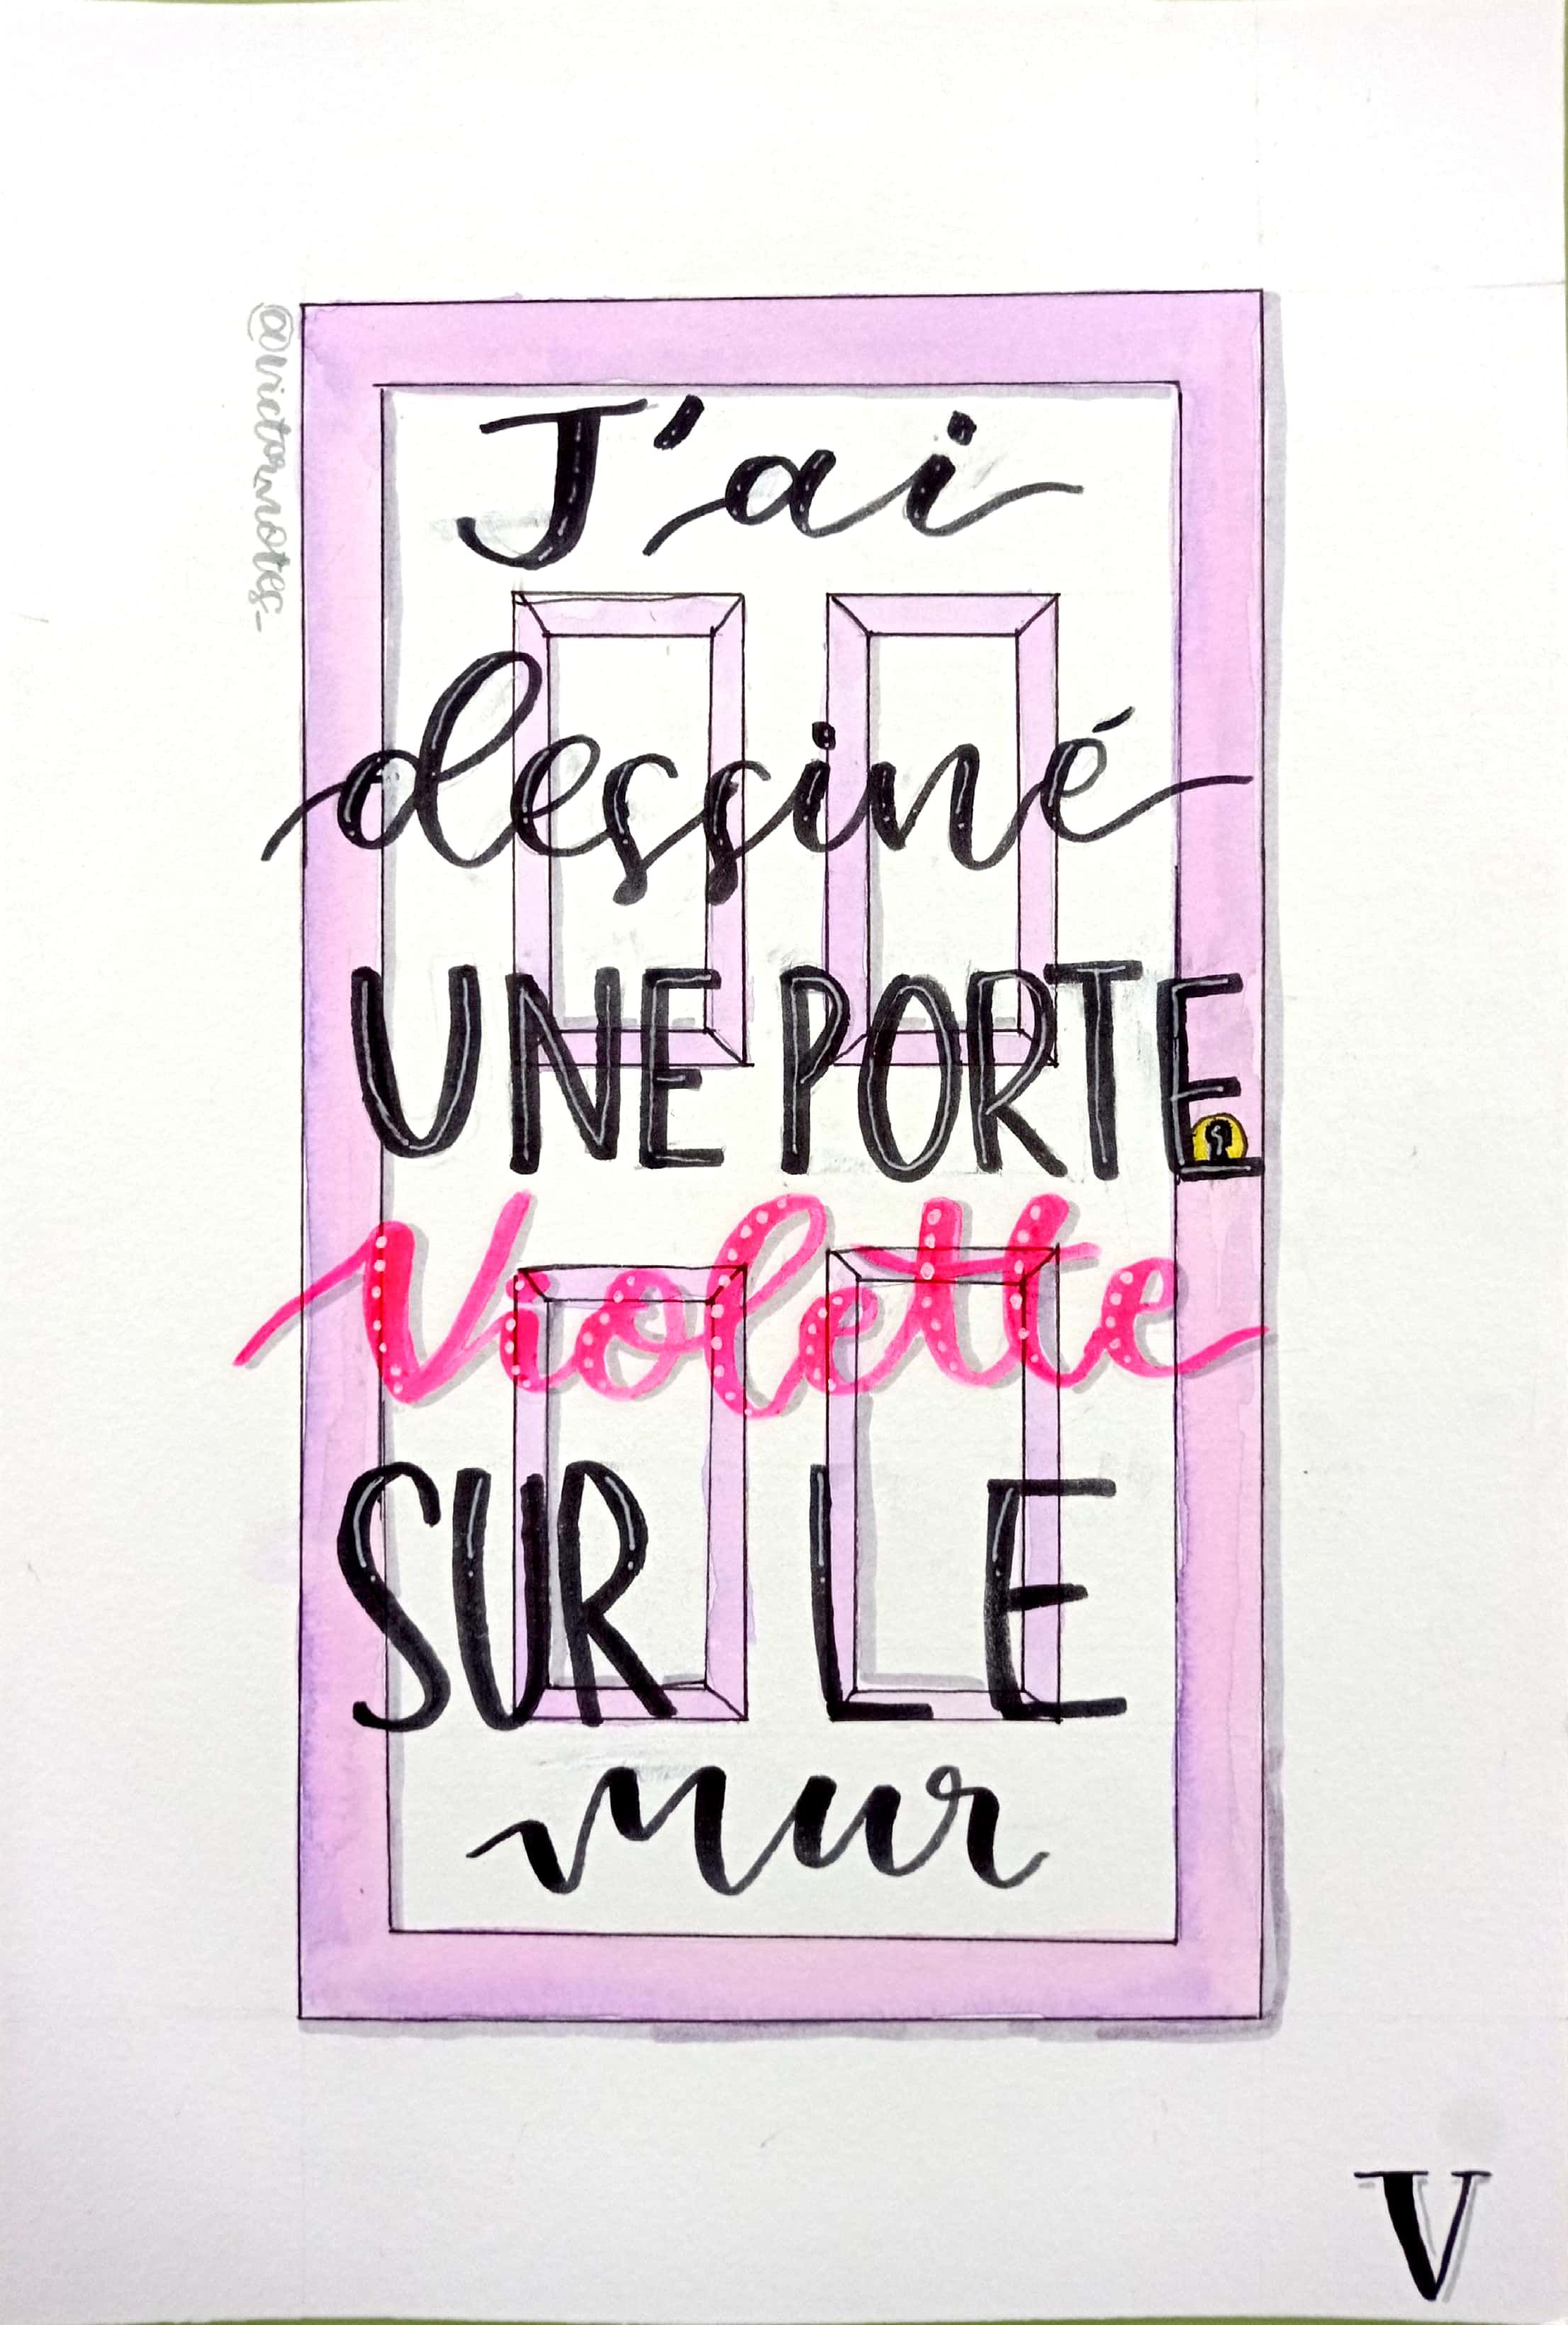 J'ai
dessiné
UNE PORTE
Violette
SUR LE
mur
@victornotes_
V